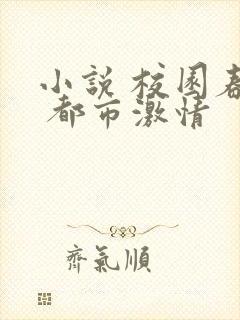 小説 校園春
都市激情
齊氣順